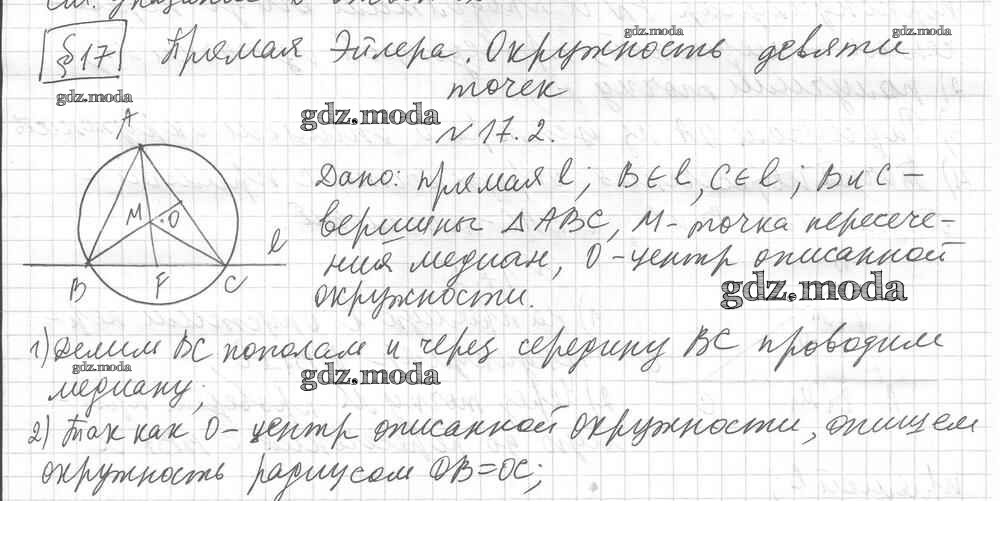 §17 Прямая Эйлера. Окружность девяти
точек
gdz.moda
gdz.moda
gdz.moda
gdz.moda
№ 17.2.
A
M
O
B
F
C
l
Дано: прямая l; B∈l, C∈l; B и C –
вершины △ABC, M – точка пересече-
ния медиан, O – центр описанной
окружности.
gdz.moda
1) Делим BC пополам и через середину BC проводим
медиану;
gdz.moda
gdz.moda
2) Так как O – центр описанной окружности, опишем
окружность радиусом OB=OC;